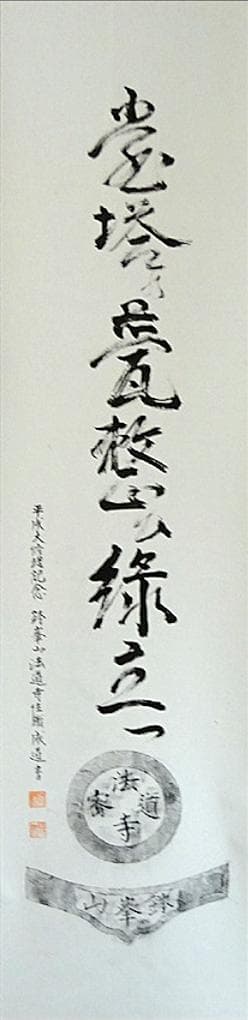 堂塔の甍整ふ緑立つ
平成大修理記念 鉢峯山法道寺住職 成道書
法道寺
鉢峯山